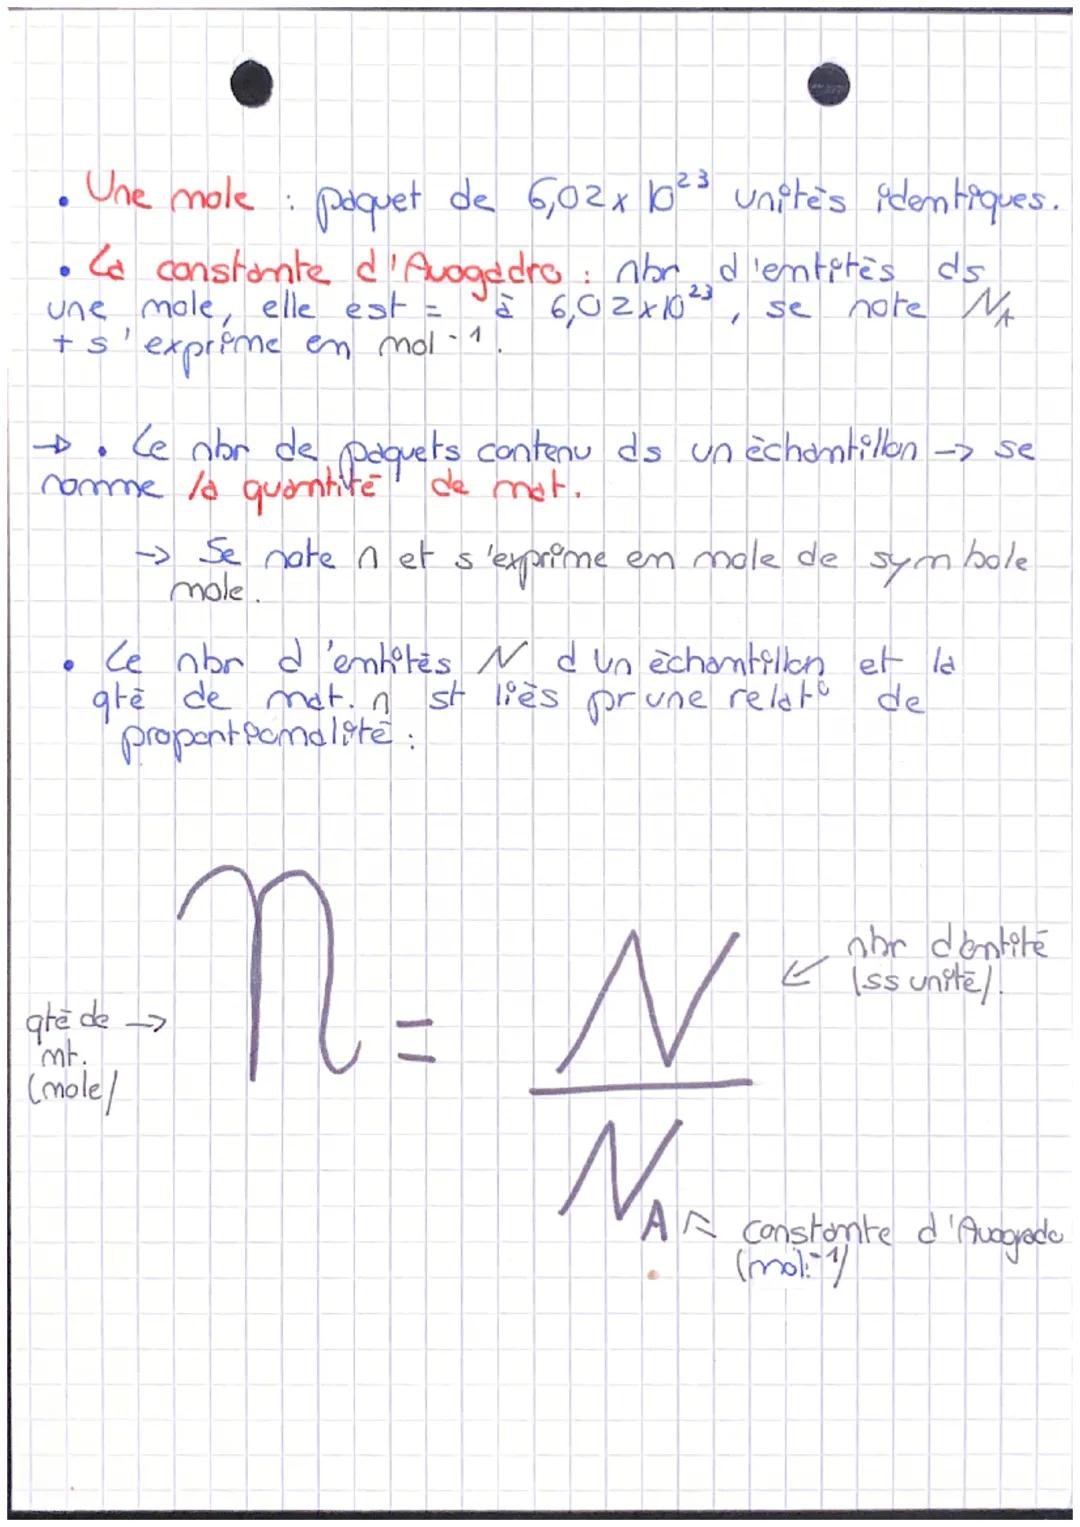 • Une mole : paquet de 6,02 x 10²³ unités identiques.
• La constante d'Avogadro : nbr d'entités ds
une mole, elle est = à 6,02 x 10²³, se note N_A
+ s'exprime en mol⁻¹.
→ • Le nbr de paquets contenu ds un échantillon → se
nomme la quantité de mat.
→ Se note n et s'exprime en mole de symbole
mole.
• Le nbr d'entités N d'un échantillon et la
qté de mat. n st liés pr une relat° de
proportionnalité :
n = N / N_A
nbr d'entité
(ss unité).
qté de →
mt.
(mole)
constante d'Avogadro
(mol⁻¹)